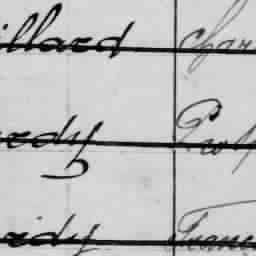 illard Char
rdy Prof
rdy Franc